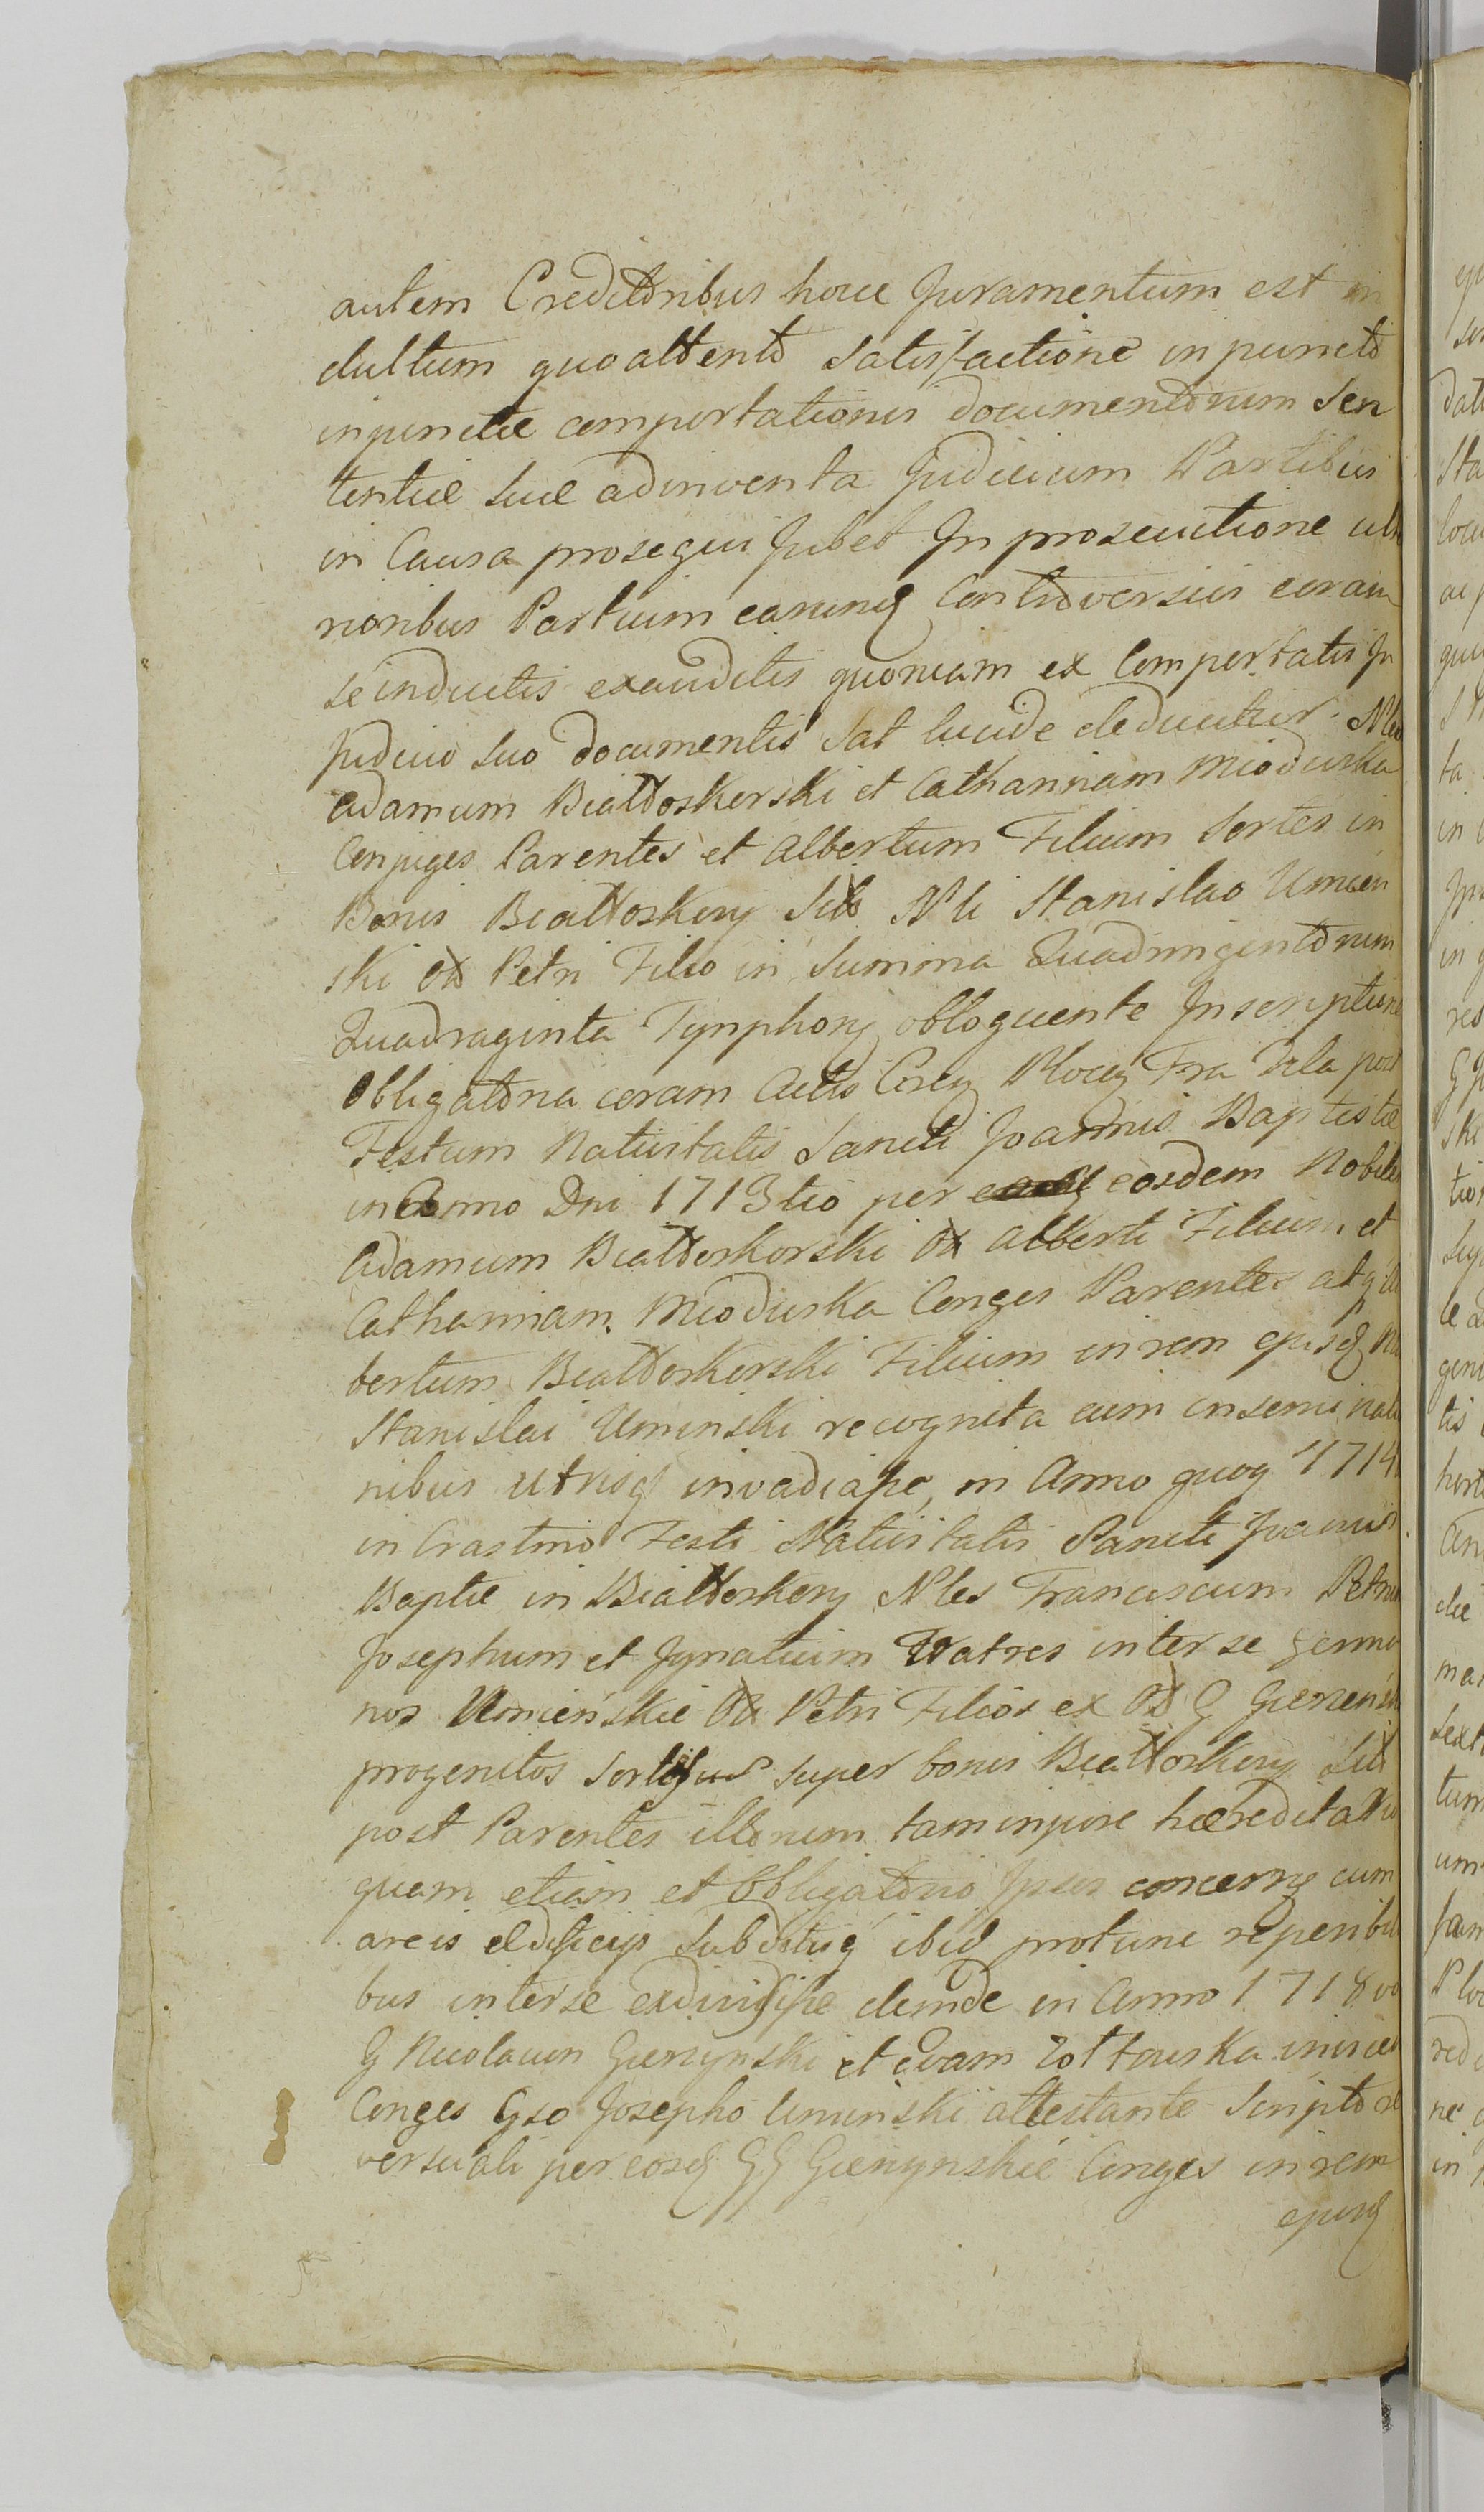 autem Creditoribus hocce Juramentum est in
dultum quo attento satisfactione in puncto
injunctæ comportationis documentorum Sen
tentiæ suæ adinventa Judicium Partibus
in Causa prosequi Jubet In prosecutione
noribus Partium earumq Controversiis coram
se inductis exauditis quoniam ex Comportatis Ju
judicio suo documentis sat lucide deducitur
Adamum Białłoskorski et Catharinam Mioduska
Conjuges Parentes et Albertum Filium Sortes in
Bonis Białłoskory Sitt Nli Stanislao Umien
ski Petri Filio in Summa Quadringentorum
Quadraginta Tymphory obloquente Inscriptione
Obligatoria coram Actis Plocen Fra 2da post
Festum Nativitatis Sancti Joannis Baptistæ
in Anno Dni 1713tio per eosdem Nobiles
Adamum Białłoskorski Alberti Filium et
Catharinam Mioduska Conges Parentes atq Al
bertum Białłoskorski Filium in rem ejusd
Stanislai Uminski recognita cum inseminatio
nibus utrisq invadiasse, in Anno quoq 1714
in Crastino Festi Nativitatis Sancti Joannis
Baptæ in Białłoskory Nles Franciscum Petrum
Josephum et Ignatium Fratres inter se germa
nos Umieńskie Petri Filios ex G
progenitos super bonis Białłoskory Sitt
post Parentes illorum tam in jure hæreditario
quam etiam et Obligatorio Ipsos concerng cum
areis ædificijs Subditisq ibid protunc reperibili
bus inter se exdivisisse deinde in Anno 1718vo
G Nicolaum Gierzynski et Evam Zołtowska
Conges Gso Josepho Uminski attestante Scripto re
versuali per eosd GG Gierzynskie Conges in rem
ejusd